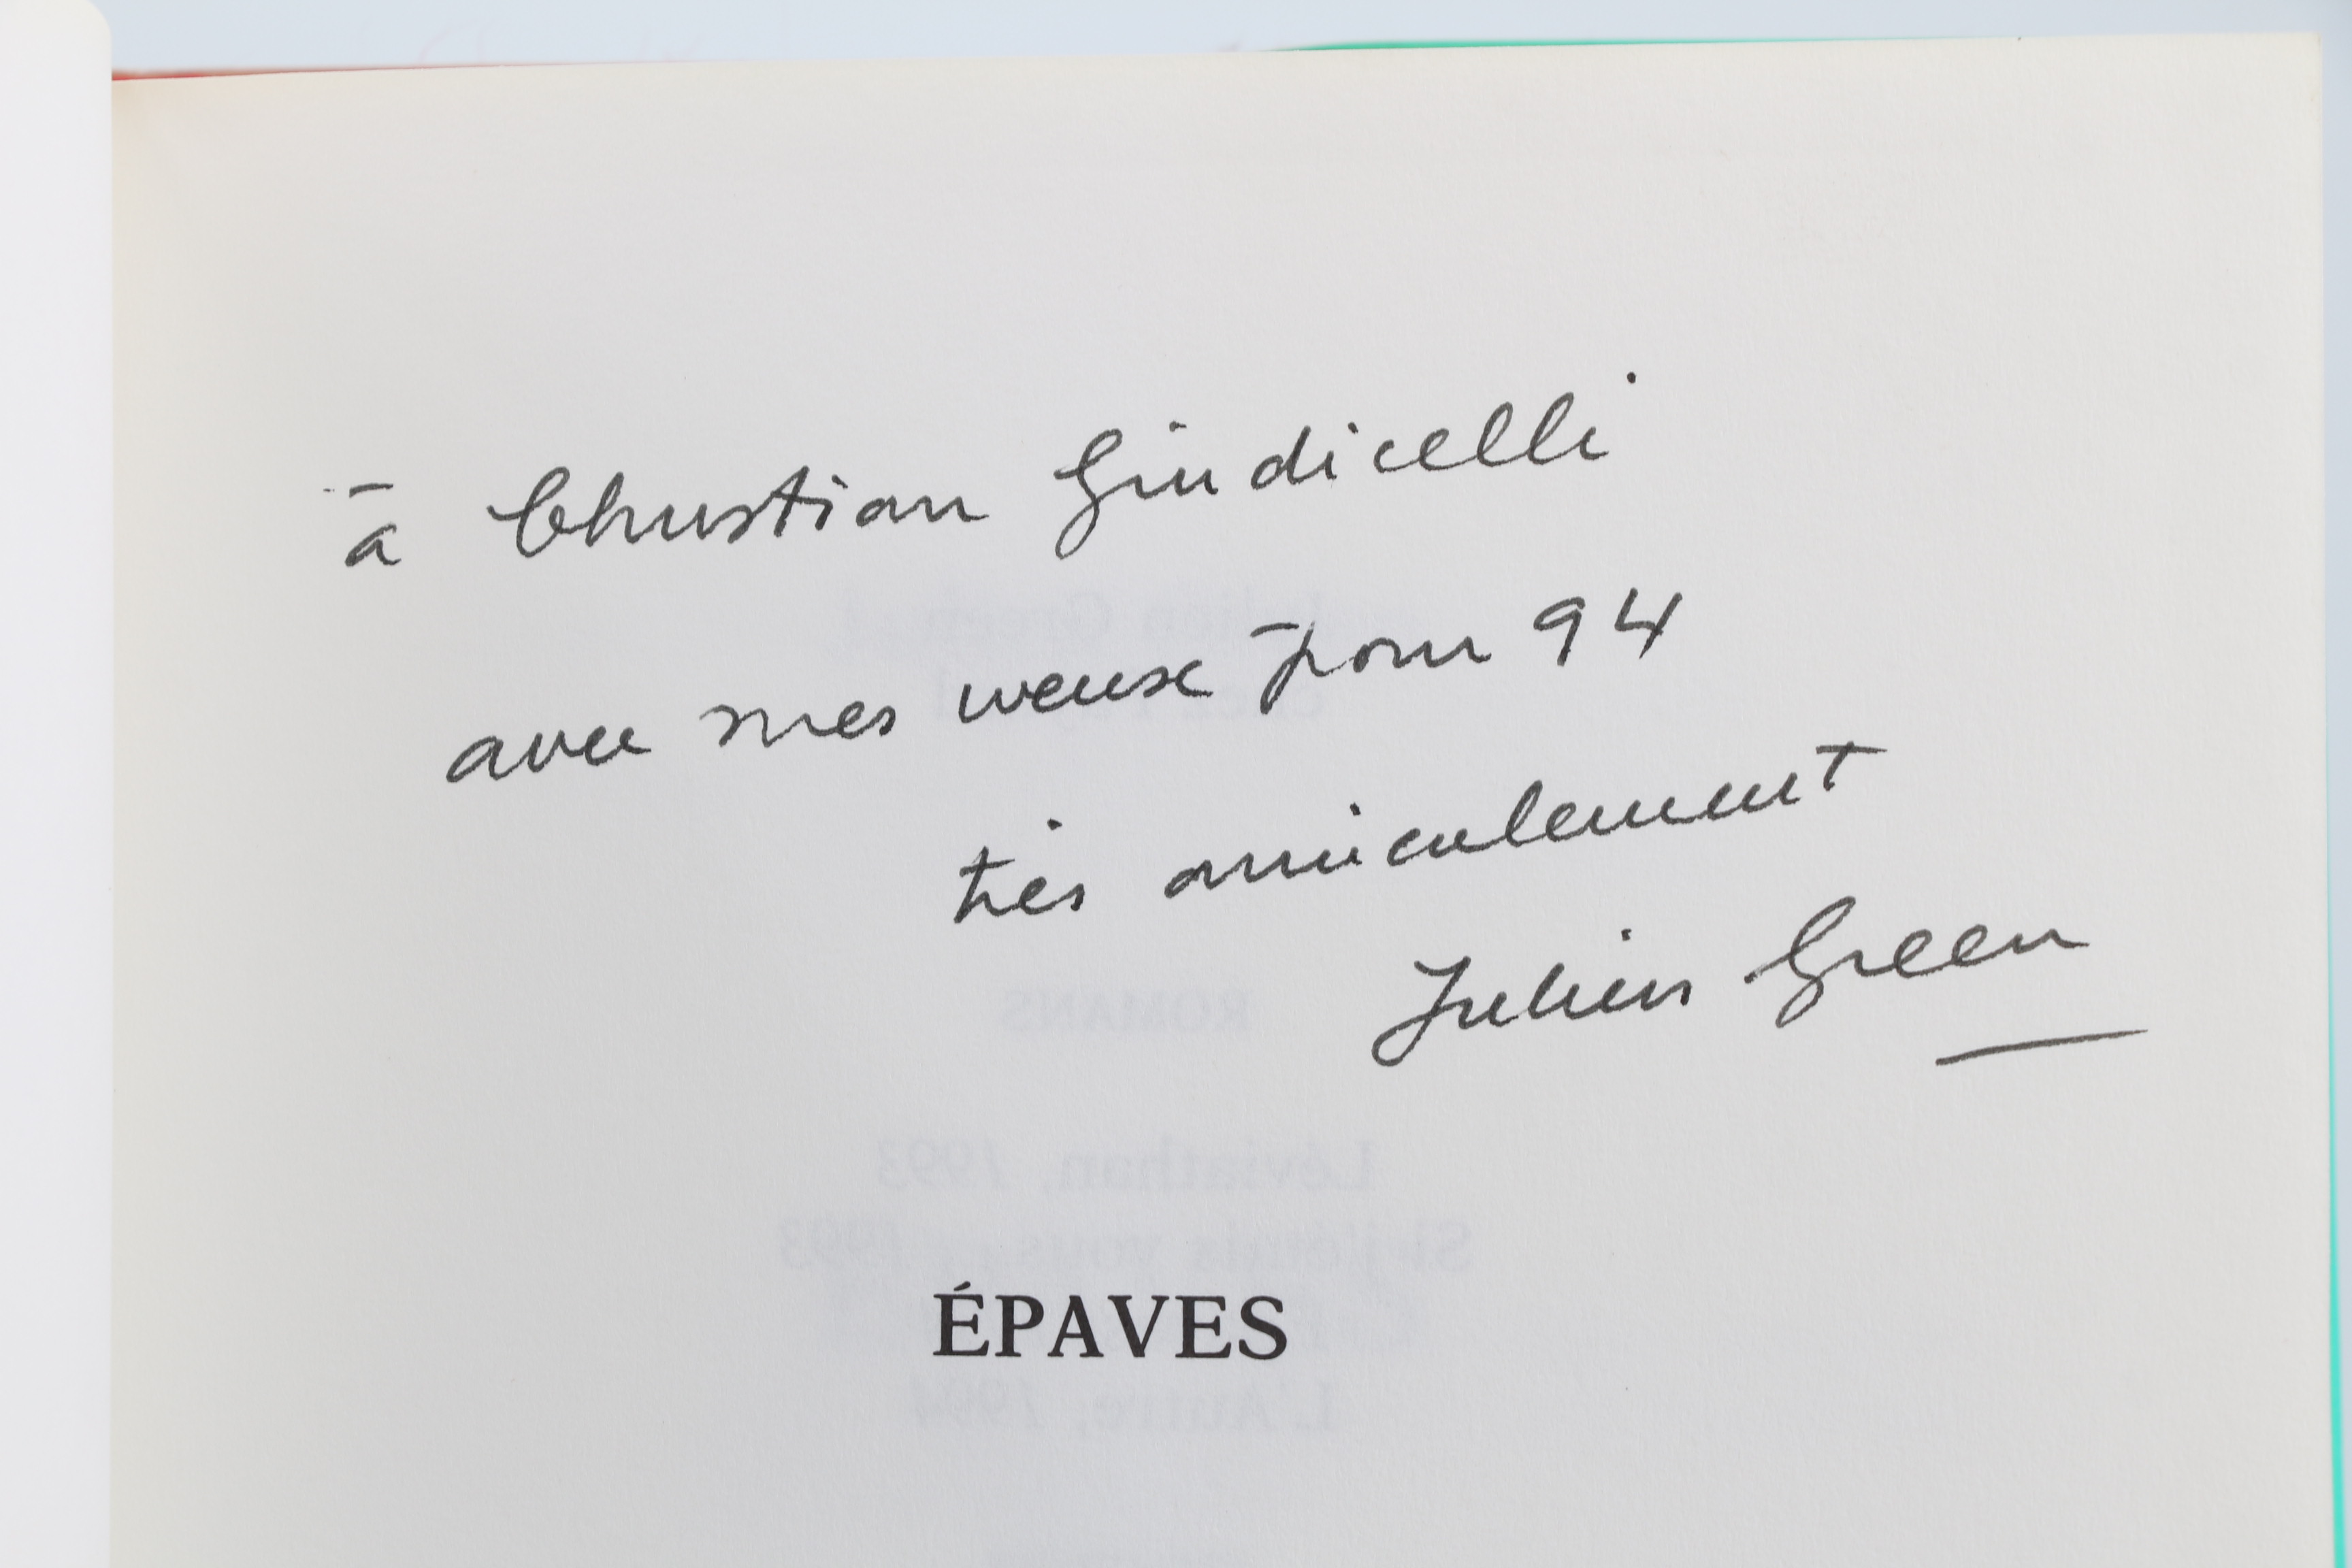 à Christian Giudicelli
avec mes vœux pour 94
très amicalement
Julien Green
ÉPAVES